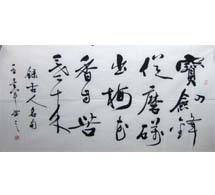 寶劍鋒
從磨礪
出梅花
香自苦
寒來
錄古人名句